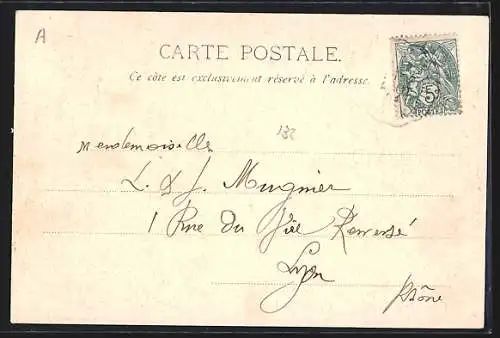 A
CARTE POSTALE.
Ce côté est exclusivement réservé à l'adresse.
132
Mesdemoiselles
L. & J. Mugnier
1 Rue du Vile Renversé
Lyon
Rhône
5